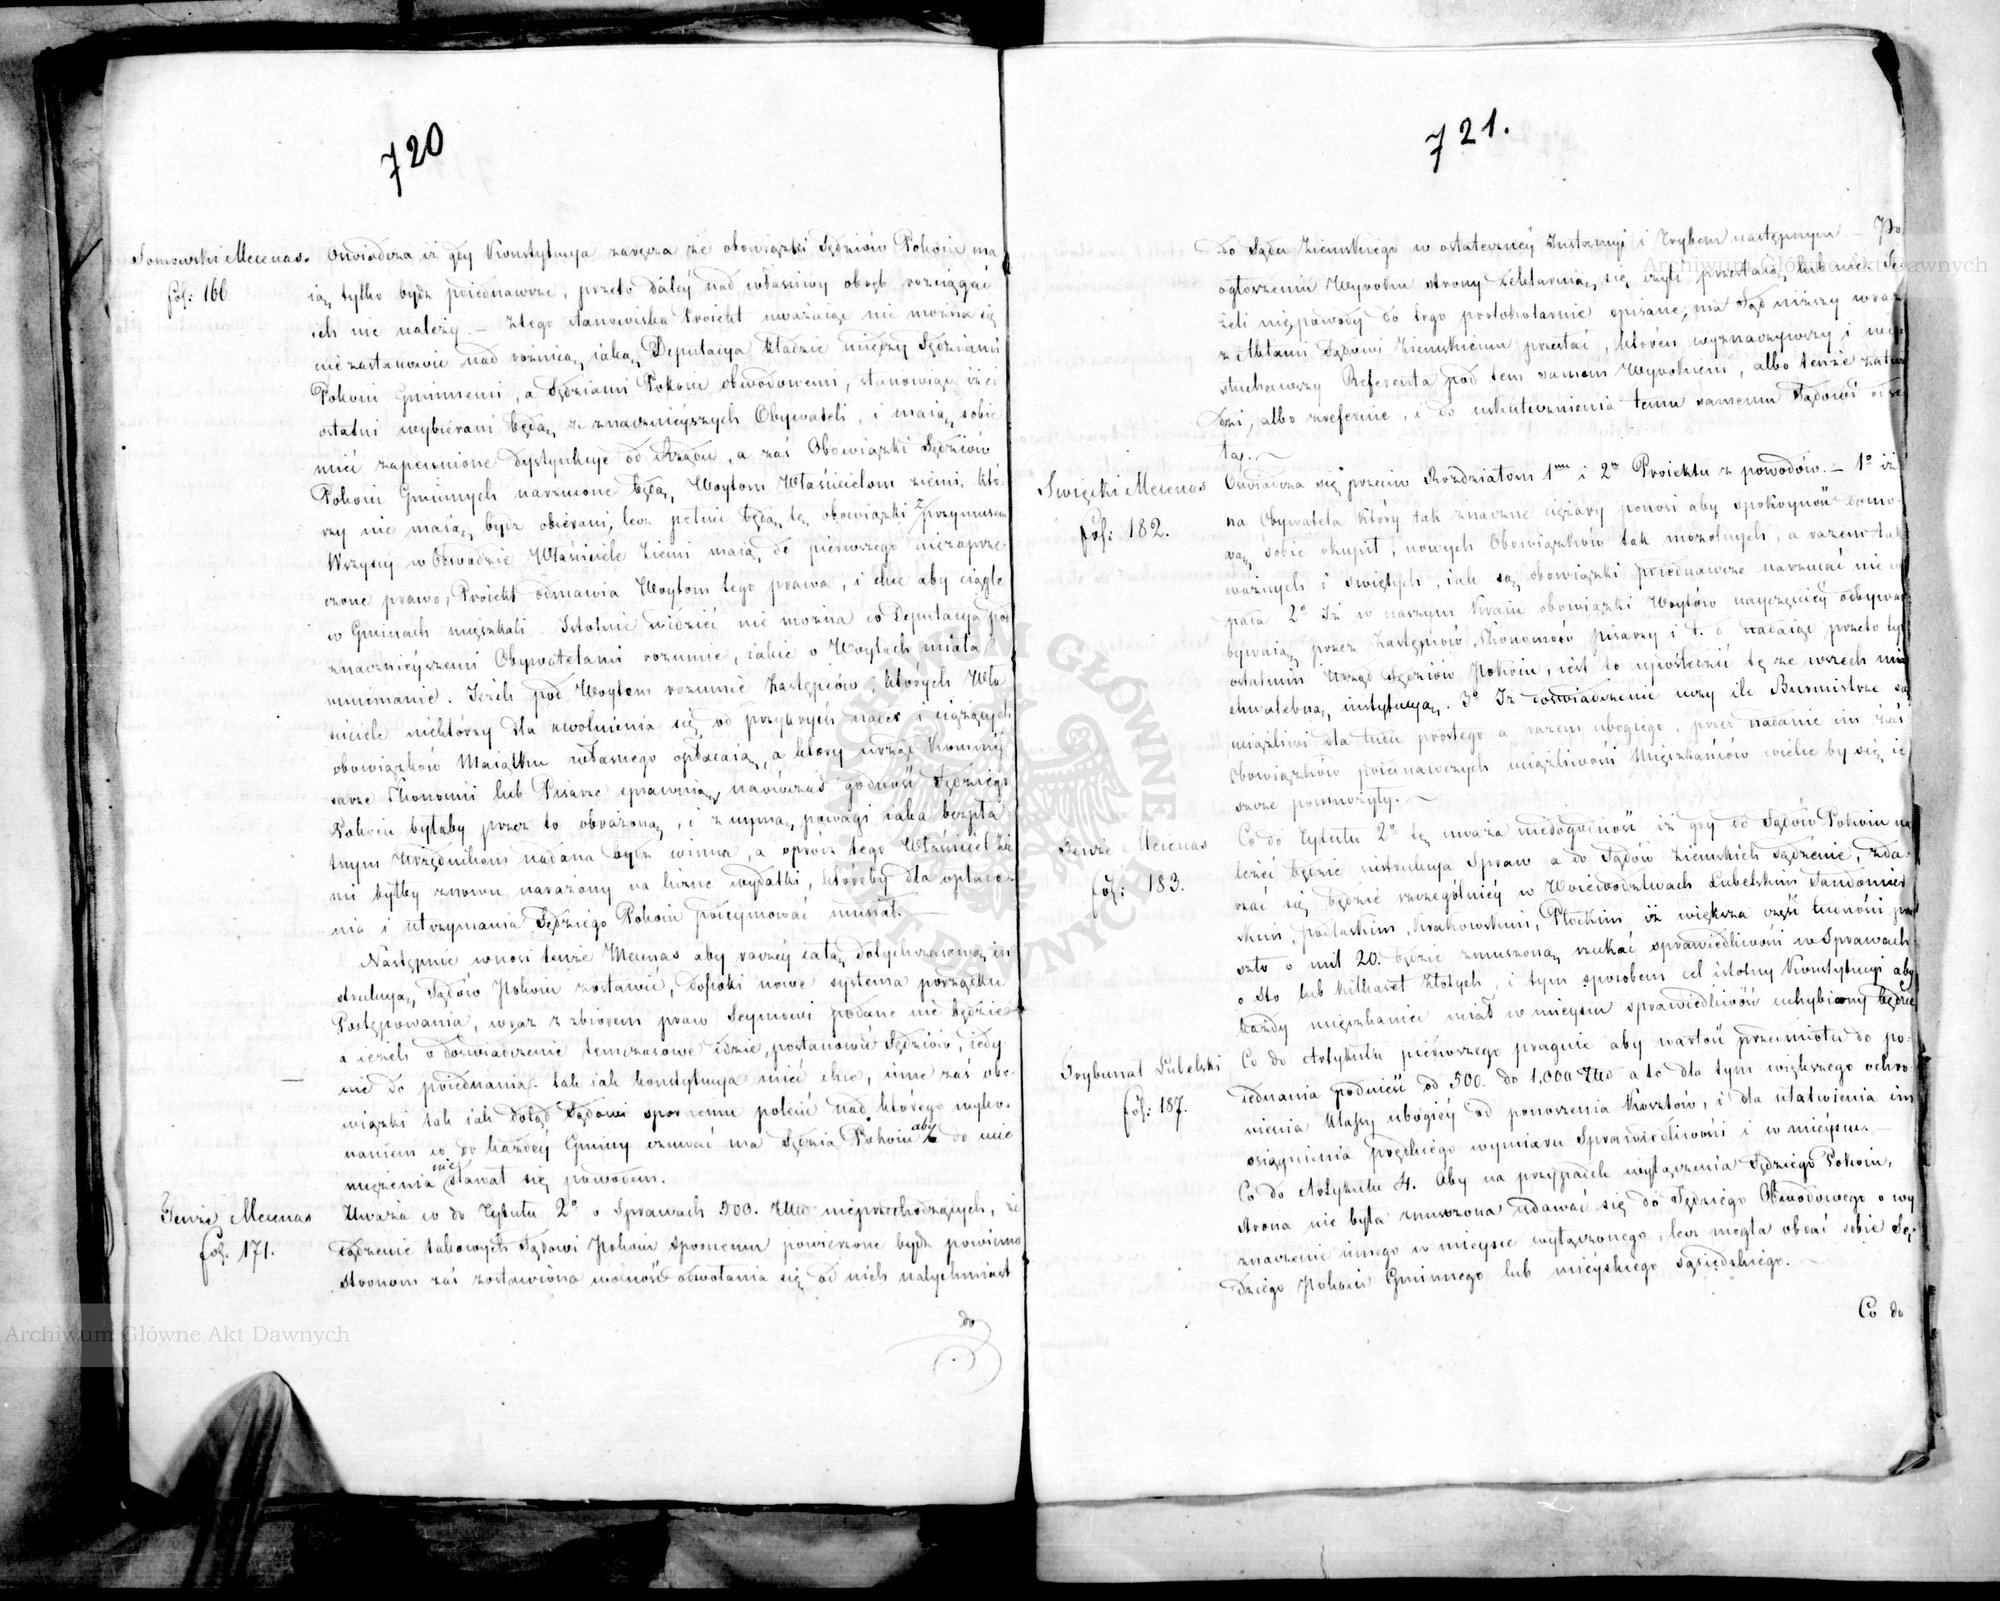 720
Tomowski Mecenas.
fol: 166
Oświadcza iż gdy Konstytucya zaręcza że obowiązki Sędziów Pokoiu ma
ią tylko bydź poiednawcze, przeto daléy nad właściwy obręb rozciągać
ich nie należy. — Z tego stanowiska Proiekt uważaiąc nie można się
nie zastanowić nad różnicą iaką Deputacya kładzie między Sędziami
Pokoiu Gminnemi, a Sędziami Pokoiu obwodowemi, stanowiąc iż ci
ostatni wybiérani będą z znacznieyszych Obywateli, i maią sobie
mieć zapewnione dystynkcye od Rządu, a zaś Obowiązki Sędziów
Pokoiu Gminnych narzucone będą Woytom Właścicielom ziemi, któ
rzy nie maią bydź obiérani, lecz pełnić będą te obowiązki z przymusem
Wszyscy w Obwodzie Właściciele Ziemi maią do pierwszego niezaprze
czone prawo, Proiekt odmawia Woytom tego prawa, i chce aby ciągle
w Gminach mięszkali. Istotnie widzieć nie można co Deputacya pod
znacznieyszemi Obywatelami rozumie, iakie o Woytach miała
mniemanie. Jeżeli pod Woytem rozumie Zastępców, których Wła
ściciele niektórzy dla uwolnienia się od przykrych nader i ciążących
obowiązków Maiątku własnego opłacaią, a który urząd Kommis
sarze Ekonomi lub Pisarze sprawuią, naówczas godność Sędziego
Pokoiu byłaby przez to obrażoną, i z uymą powagi iaka bezpła
tnym Urzędnikom nadana bydź winna, a oprócz tego Właściciel Zie
mi byłby znowu narażony na liczne wydatki, któreby dla opłace
nia i utrzymania Sędziego Pokoiu podeymować musiał. —
Następnie wnosi tenże Mecenas aby raczéy całą dotychczasową in
strukcyą Sądów Pokoiu zostawić, dopóki nowe systema porządku
Postępowania, wraz z zbiorem praw Seymowi podane nie będzie
a ieżeli o doświadczenie temczasowe idzie, postanowić Sędziów, iedy
nie do poiednania, tak iak konstytucya mieć chce, inne zaś obo
wiązki tak iak dotąd Sądowi spornemu polecić nad którego wyko
naniem co do każdey Gminy czuwać ma Sędzia Pokoiu aby do nie
mięszenia nie stawał się powodem.
Tenże Mecenas
fol. 171.
Uważa co do Tytułu 2º o Sprawach 500. Złło nieprzechodzących, że
sądzenie takowych Sądowi Pokoiu spornemu powierzone bydź powinno
stronom zaś zostawiona wolność odwołania się od nich natychmiast
do
721.
do Sądu Ziemskiego w ostateczney Instancyi i Trybem następnym — Po
ogłoszeniu Wyroku strony deklaruią się czyli przestaią lub nie Je
żeli nie, powody do tego protokolarnie spisane, ma Sąd niższy wraz
z Aktami Sądowi Ziemskiemu przesłać, który wyznaczywszy i wy
słuchawszy Referenta pod tem samem Wyrokiem, albo tenże zatwier
dzi, albo zreformuie, i do uskutecznienia temu samemu Sądowi ode
śle. —
Swięcki Mecenas
fol: 182.
Oświadcza się przeciw Rozdziałom 1mu i 2mu Proiektu z powodów. — 1º iż
na Obywatela który tak znaczne ciężary ponosi aby spokoyność domo
wą sobie okupił, nowych Obowiązków tak mozolnych, a razem tak
ważnych i swiętych, iak są obowiązki poiednawcze narzucać nie wy
pada 2º Iż w naszym Kraiu obowiązki Woytów nayczęściéy odbywa
bywaią przez Zastępców, Ekonomów Pisarzy i t. d. nadaiąc przeto tym
ostatnim Urząd Sędziów Pokoiu, iest to upośledzić tę ze wszech miar
chwalebną instytucyą. 3º Iż doświadczenie uczy ile Burmistrze są
uciążliwi dla ludu prostego a razem ubogiego, przez nadanie im zaś
Obowiązków poiednawczych uciążliwości Mięszkańców wielce by się ie
szcze pomnożyły. —
Tenże Mecenas
fol: 183.
Co do Tytułu 2º tę uważa niedogodność iż gdy do Sądów Pokoiu na
leżeć będzie instrukcya Spraw a do Sądów Ziemskich sądzenie, zda
rzać się będzie szczególniéy w Woiewodztwach Lubelskim Sandomier
skim, Podlaskim, Krakowskim, Płockim iż większa część ludności prze
szło o mil 20. będzie zmuszoną szukać sprawiedliwości w Sprawach
o Sto lub kilkaset złotych, i tym sposobem cel istotny Konstytucyi aby
każdy mięszkaniec miał w mieyscu sprawiedliwość uchybiony będzie
Trybunał Lubelski
fol: 187.
Co do Artykułu pierwszego pragnie aby wartość przedmiotu do po
iednania podnieść od 500. do 1,000 Złło a to dla tym większego ochro
nienia klassy uboższéy od ponoszenia Kosztów, i dla ułatwienia im
osiągnienia prędkiego wymiaru Sprawiedliwości i w mieyscu. —
Co do Artykułu 4. Aby na przypadek wyłączenia Sędziego Pokoiu,
strona nie była zmuszona udawać się do Sędziego Obwodowego o wy
znaczenie innego w mieysce wyłączonego, lecz mogła obrać sobie Sę
dziego Pokoiu Gminnego lub mieyskiego sąsiedzkiego. —
Co do
Archiwum Główne Akt Dawnych
Archiwum Główne Akt Dawnych
ARCHIWUM GŁÓWNE AKT DAWNYCH